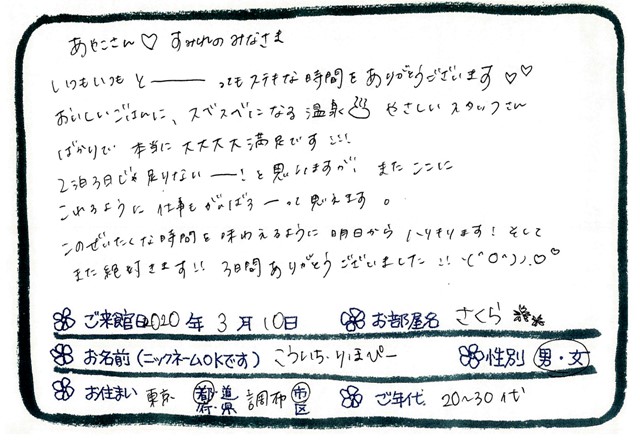 あやこさん♡ すみれのみなさま
いつもいつも と―――ってもステキな時間をありがとうございます♡♡
おいしいごはんに、スベスベになる温泉♨ やさしいスタッフさん
ばかりで 本当に大大大大満足です!!!
2泊3日じゃ足りない―!と思いますが、またここに
これるように仕事もがんばろーって思えます。
このぜいたくな時間を味わえるように明日からハリキリます!そして
また絶対きます!! 3日間ありがとうございました!! \(^O^)/♡♡
ご来館日 2020年 3月10日 お部屋名 さくら
お名前(ニックネームOKです) こういち・りほぴー 性別 男・女
お住まい 東京 都・道・府・県 調布 市・区 ご年代 20~30代